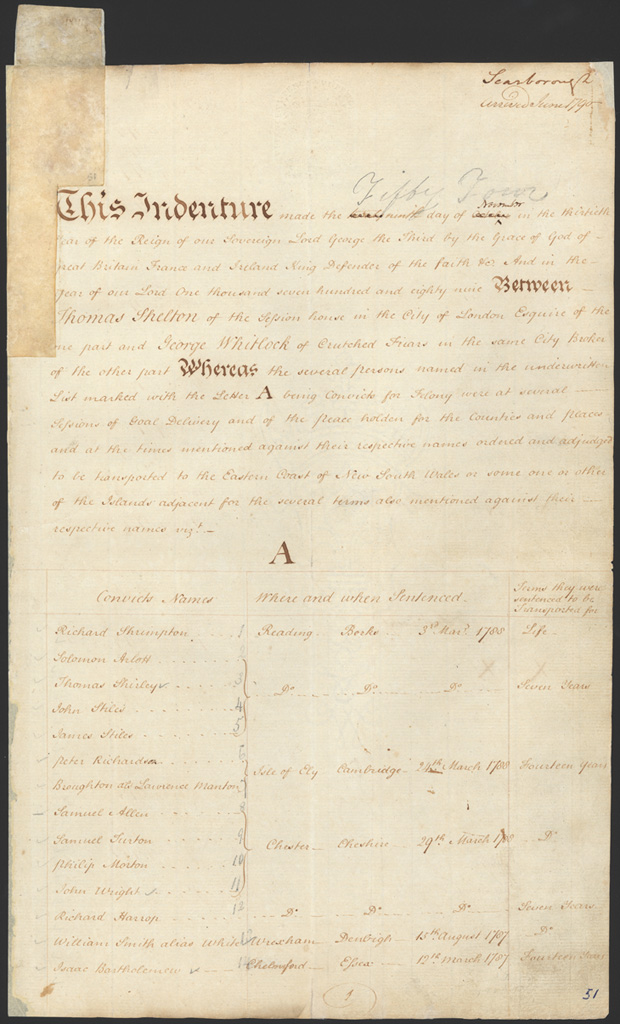 Scarborough
arrived June 1790
51
Fifty Four
This Indenture made the ninth day of November in the thirtieth
Year of the Reign of our Sovereign Lord George the Third by the Grace of God of
Great Britain France and Ireland King Defender of the faith &c. And in the
Year of our Lord One thousand seven hundred and eighty nine Between
Thomas Shelton of the Session house in the City of London Esquire of the
one part and George Whitlock of Crutched Friars in the same City Broker
of the other part Whereas the several persons named in the underwritten
List marked with the Letter A being Convicts for Felony were at several
Sessions of Goal Delivery and of the peace holden for the Counties and places
and at the times mentioned against their respective names ordered and adjudged
to be transported to the Eastern Coast of New South Wales or some one or other
of the Islands adjacent for the several terms also mentioned against their
respective names vizt.
A
Convicts Names Where and when Sentenced Terms they were sentenced to be Transported for
Richard Shrimpton 1 Reading Berks 3d. Mar. 1788 Life
Solomon Arlott
Thomas Shirleys 3 Do. Do. Do. Seven Years
John Stiles 4
James Stiles 5
Peter Richardson 6
Broughton als Lawrence Manton 7 Isle of Ely Cambridge 24th March 1788 Fourteen Years
Samuel Allen 8
Samuel Turton 9 Chester Cheshire 29th March 1788 Do.
Philip Morton 10
John Wright 11
Richard Harrop 12 Do. Do. Do. Seven Years
William Smith alias White Wrexham Denbigh 15th August 1787 Do.
Isaac Bartholemew Chelmsford Essex 12th March 1787 Fourteen Years
1
51